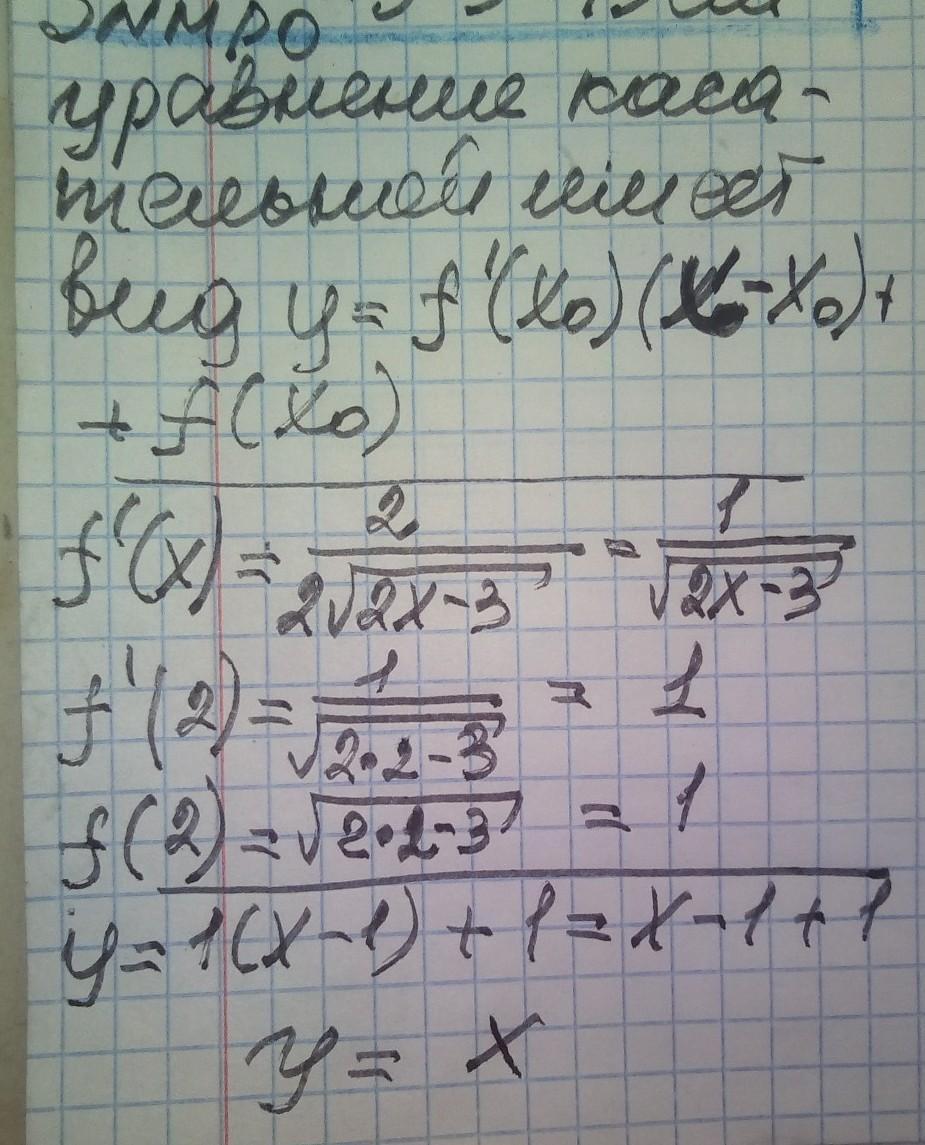 уравнение каса-
тельней имеет
вид y = f'(x₀)(x-x₀)+
+ f(x₀)
f'(x) = 2/(2√(2x-3)) = 1/√(2x-3)
f'(2) = 1/√(2·2-3) = 1
f(2) = √(2·2-3) = 1
y = 1(x-1) + 1 = x-1+1
y = x